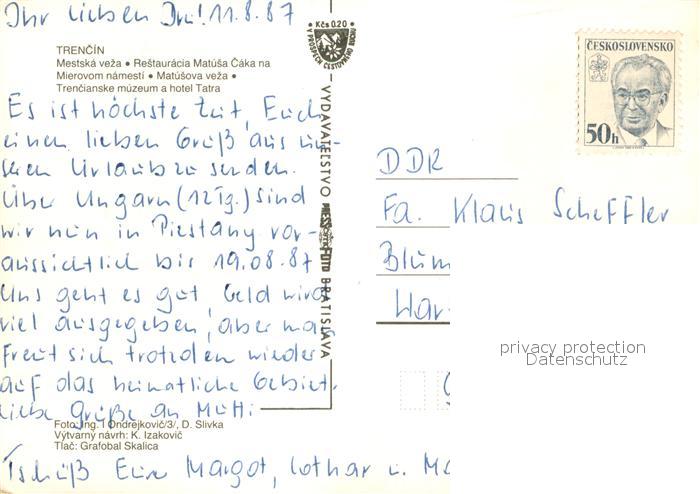 Ihr lieben Drei! 11.8.87
Kčs 0.20
V PROSPECH CESTOVNÉHO RUCHU
TRENČÍN
Mestská veža • Reštaurácia Matúša Čáka na
Mierovom námestí • Matúšova veža •
Trenčianske múzeum a hotel Tatra
Es ist höchste Zeit, Euch
einen lieben Gruß aus un-
seren Urlaub zu senden.
Über Ungarn (12 Tg.) sind
wir nun in Piestany vor-
aussichtlich bis 19.08.87
Uns geht es gut, Geld wird
viel ausgegeben, aber man
freut sich trotzdem wieder
auf das heimatliche Gebiet.
Liebe Grüße an Mutti
Foto: Ing. I Ondrejkovič/3/, D. Slivka
Výtvarný návrh: K. Izakovič
Tlač: Grafobal Skalica
Tschüß Eure Margot, Lothar u. M
VYDAVATEĽSTVO PRESSFOTO BRATISLAVA
ČESKOSLOVENSKO
50h
DDR
Fa. Klaus Scheffler
Blum
War
privacy protection
Datenschutz